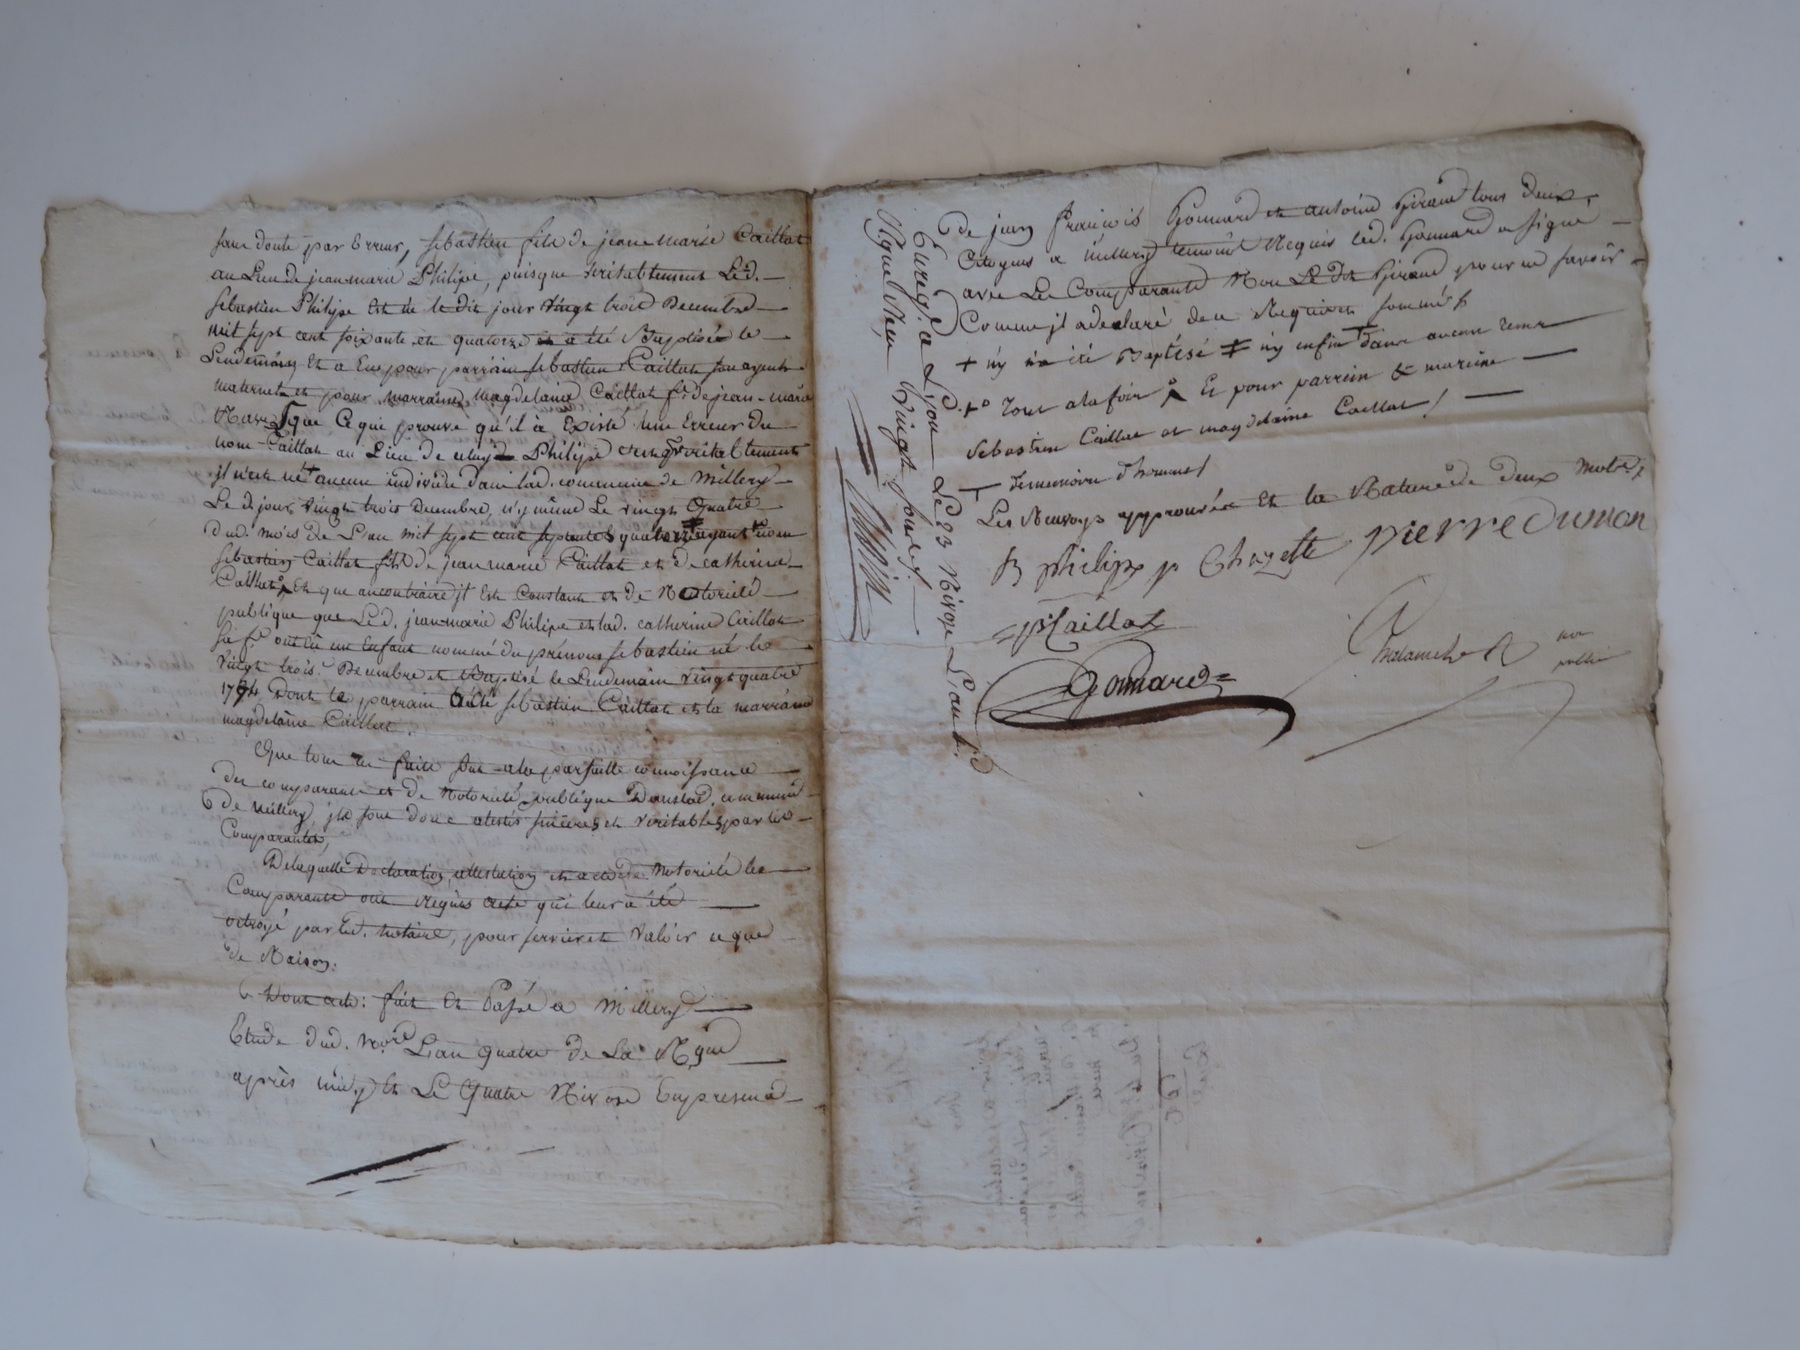 sans doute par Erreur, sebastien fils de jean marie Caillat
au Lieu de jean marie Philipe, puisque veritablement Led.
sebastien Philipe Est né le dit jour vingt trois Decembre
mil sept cent soixante et quatorze et a été Baptisé le
Lendemain Et a Eu pour parrain sebastien Caillat son ayeul
maternel et pour marraine magdelaine Caillat fe. de jean-marie
que Ce qui prouve qu'il a Existé une Erreur du
nom Caillat au Lieu de celuy de Philipe veritablement
il n'est né aucun individu dans lad. commune de Millery
Le d. jour vingt trois Decembre, n'y même Le vingt Quatre
Dud. mois de L'an mil sept cent septante quatorze ayant nom
sebastien Caillat fils de jean marie Caillat et de catherine
Caillat Et que aucontraire il Est Constant et de Notorieté
publique que Led. jean marie Philipe et lad. catherine Caillat
sa fe. ont Eu un Enfant nommé du prénom sebastien né le
vingt trois Decembre et Baptisé le Lendemain vingt quatre
1774 Dont le parrain a été sebastien Caillat et la marraine
magdelaine Caillat.
Que tous ces faits sont a la parfaite connoissance
des comparants et de Notorieté publique Dans lad. commune
de Millery, ils sont donc attestés sincères et veritables par les
Comparants,
De laquelle Declaration, attestation et acte de Notorieté les
Comparants ont requis acte qui leur a été
octroyé par led. notaire, pour servir et valoir ce que
de Raison.
Dont acte: fait Et Passé a Millery
Etude dud. Nore. L'an quatre de La Rque
après midy Et Le Quatre Nivose En presence
de jean François Gonnard et antoine Giraud tous deux
Citoyens a Millery temoins Requis led. Gonnard a signé
avec Les Comparants Non Le dit Giraud pour ne savoir
Comme il a declaré de ce Requis et sommé
+ ny n'a été Baptisé ‡ ny enfin dans aucun tems
tout a la fois Et pour parrein & mareine
sebastien Caillat et magdelaine Caillat
Les Renvoys approuvés Et la Rature de deux mots
philipe p Chazette pierre dumon
Caillat
Gonnard
not
public
Enregé. a Lyon Le 23 Nivose L'an 4
Reçu vingt